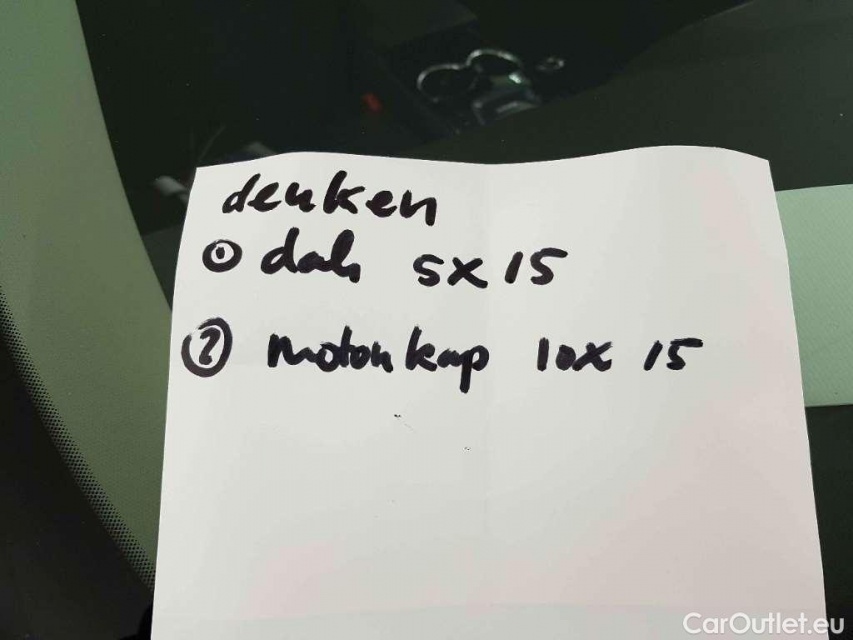 deuken
① dak 5x15
② motorkap 10x 15
CarOutlet.eu